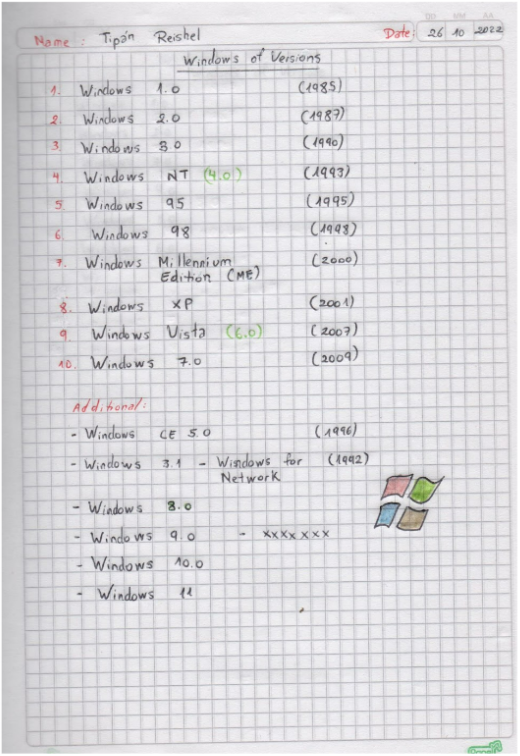 DD MM AA
Name : Tipán Reishel Date: 26 10 2022
Windows of Versions
1. Windows 1.0 (1985)
2. Windows 2.0 (1987)
3. Windows 3.0 (1990)
4. Windows NT (4.0) (1993)
5. Windows 95 (1995)
6. Windows 98 (1998)
7. Windows Millennium (2000)
Edition (ME)
8. Windows XP (2001)
9. Windows Vista (6.0) (2007)
10. Windows 7.0 (2009)
Additional:
- Windows CE 5.0 (1996)
- Windows 3.1 - Windows for (1992)
Network
- Windows 8.0
- Windows 9.0 - xxxxxxx
- Windows 10.0
- Windows 11